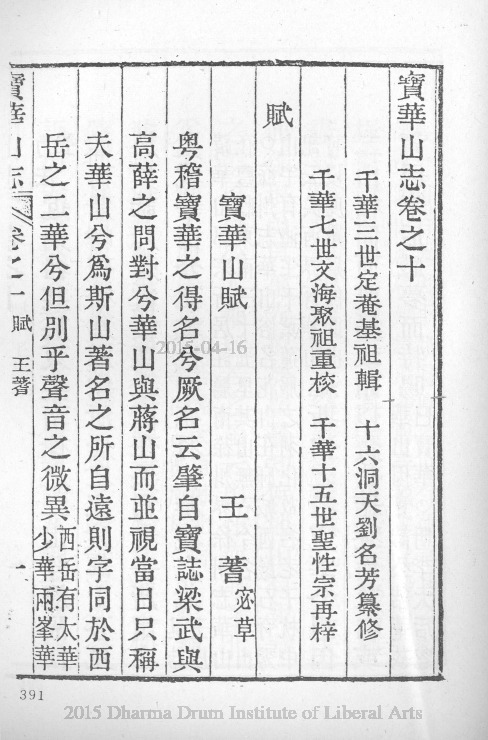 寶華山志卷之十
千華三世定菴基祖輯 十六洞天劉名芳纂修
千華七世文海聚祖重校 千華十五世聖性宗再梓
賦
寶華山賦 王蓍宓草
粵稽寶華之得名兮厥名云肇自寶誌梁武與
高薛之問對兮華山與蔣山而並視當日只稱
夫華山兮爲斯山著名之所自遠則字同於西
岳之二華兮但別乎聲音之微異西岳有太華少華兩峯華
寶華山志 卷之十 賦 王蓍 一
2015-04-16
391
2015 Dharma Drum Institute of Liberal Arts